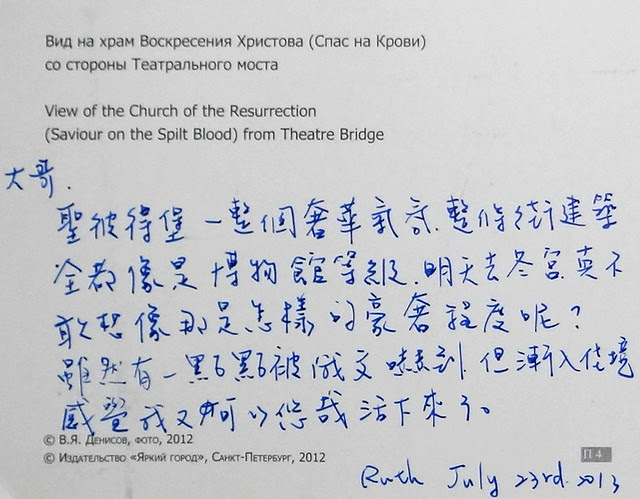 Вид на храм Воскресения Христова (Спас на Крови)
со стороны Театрального моста
View of the Church of the Resurrection
(Saviour on the Spilt Blood) from Theatre Bridge
大哥.
聖彼得堡一整個奢華氣派.整條街建築
全都像是博物館等級.明天去冬宮真不
敢想像那是怎樣的豪奢程度呢?
雖然有一點點被俄文嚇到.但漸入佳境
感覺我又可以悠哉活下來了。
© В.Я. Денисов, фото, 2012
© Издательство «Яркий город», Санкт-Петербург, 2012
П 4
Ruth July 23rd. 2013